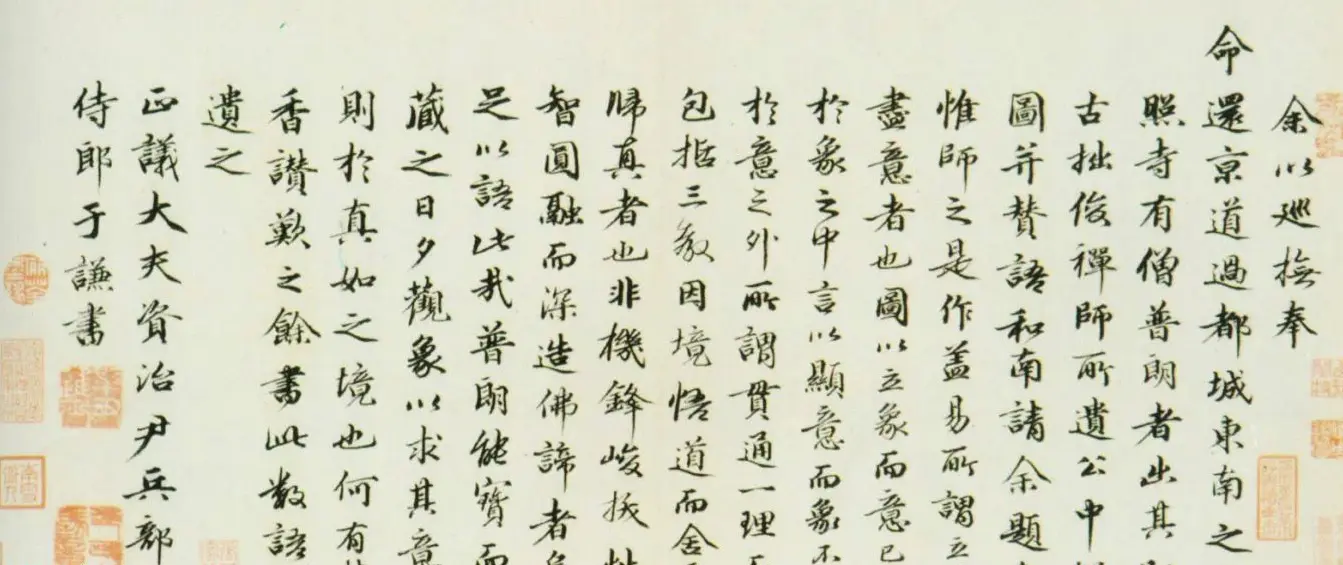 余以巡撫奉
命還京道過都城東南之
照寺有僧普朗者出其
古拙俊禪師所遺公中
圖并贊語和南請余題
惟師之是作盖易所謂立
盡意者也圖以立象而意已
於象之中言以顯意而象不
於意之外所謂貫通一理
包括三教因境悟道而舍
歸真者也非機鋒峻拔
智圓融而深造佛諦者
足以語此哉普朗能寶而
藏之日夕觀象以求其意
則於真如之境也何有
香讃歎之餘書此數語
遺之
正議大夫資治尹兵部
侍郎于謙書